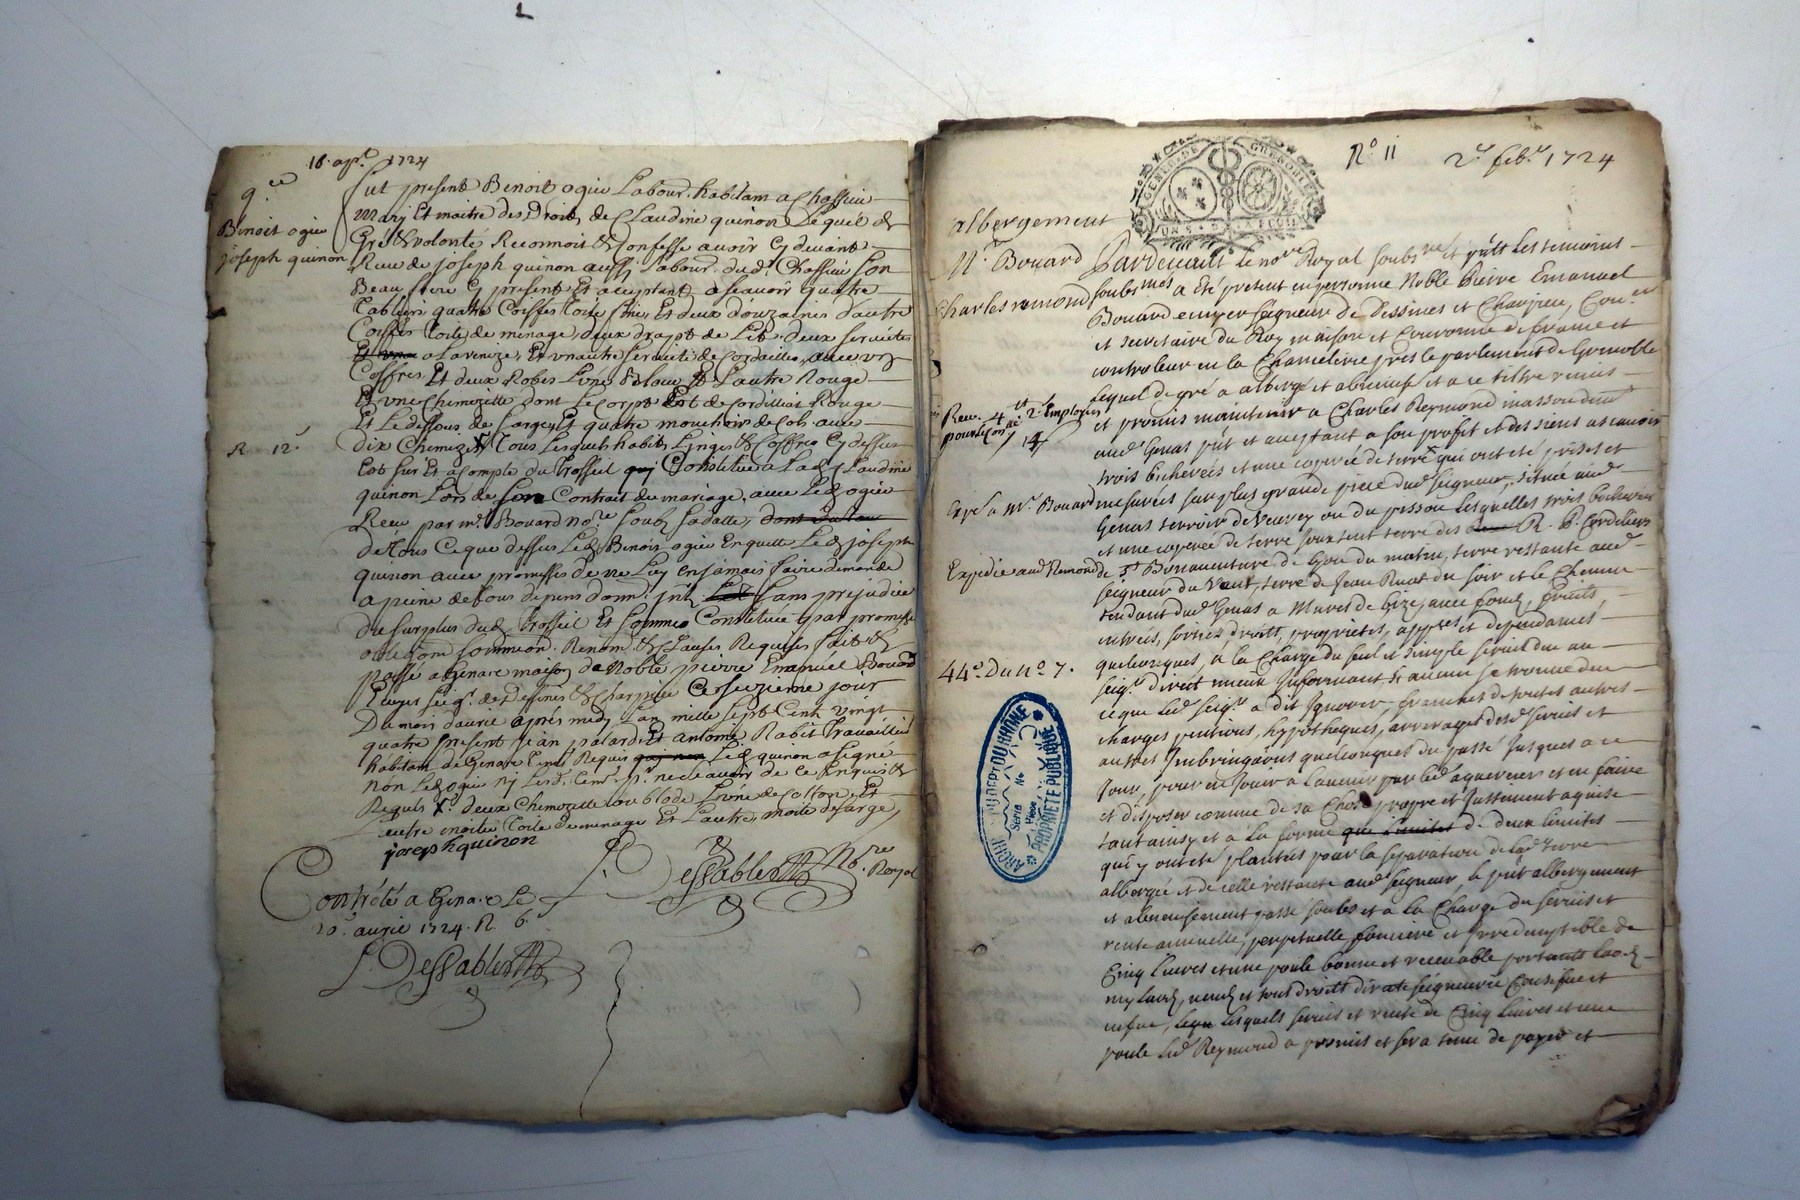 16. ap.l 1724
q.ce
Benoit ogier
joseph quinon
R 12.s
fut present Benoit ogier Labour. habitant a Chassieu
mary Et maitre des Droits de Claudine quinon Lequel de
Gré & volonté Reconnoit & Confesse avoir Cy devant
Receu de joseph quinon aussy Labour. dud. Chassieu son
Beau frere Cy present Et acceptant a scavoir quatre
Tabliers quatre Coiffes Toile fine, Et deux douzaines d'autre
Coiffes Toile de menage, deux draps de Lit, deux serviettes
Et une a Lavenize, Et un autre serviete de Cordailles, avec un
Coffres Et deux Robes L'une Bleue & L'autre Rouge
Et une Chemizette dont Le corps Est de Cordilliat Rouge
Et Le dessous de Sarge, Et quatre mouchoirs de Col avec
dix Chemizes X Tous Lesquels habits, Linges & Coffres Cy dessus
Est sur Et a Compte du Trosseil qui Constitué a Lad. Claudine
quinon Lors de son Contrat de mariage, avec Led. ogier
Receu par m.e Bouard no.re soubs sa datte, dont
de Tous Ce que dessus Led. Benoit ogier En quitte Led. joseph
quinon avec promesses de ne Luy En jamais faire demande
a peine de tous depens dom. int. sans prejudice
du surplus dud. Trosseil Et sommes Constituée par promesse
obligaon soumission. Renon. & Clauses Requises fait &
passé a Genas maison de Noble pierre Emanuel Bouard
Ecuyer seig.r de Dessines & Charpieu Ce seizieme jour
Du mois d'avril apres midy L'an mille sept Cent vingt
quatre present jean palard Et antoine Rabit Travailleur
habitant de Genas Temt. Requis Led. quinon a signé
non Led. ogier ny Lesd. Tem. p.r ne scavoir de Ce Enquis &
Requis X.e deux Chemizette doublode L'une de Cotton, Et
L'autre moitié Toile de menage Et L'autre moitié de sarge,
joseph quinon
Dessablettes No.re Royal
Controlé a Genas Le
20.e avril 1724. R. 6.s
Dessablettes
GENER. DE GRENOBLE
N.o 11
2.e feb.er 1724
albergement
N.e Bouard
Charles remond
Rec. 4 tt 2.s Employes
pour Le Con.le
/ 14
Exp.é a Mr. Bouard
Expedié aud. Remond
44.e Du n.o 7.
Pardevant le no.re Royal soubs.né et p.nts Les temoins
soubs.nes a Eté present en personne Noble Pierre Emanuel
Bouard ecuyer seigneur de Dessines et Charpieu, Con.er
et secretaire du Roy maison et Couronne de france et
controleur en la Chancelerie prés le parlement de Grenoble
lequel de gré a albergé et abenevisé et a ce tiltre remis
et promis maintenir a Charles Reymond masson dem.t
aud. Genas p.nt et acceptant a son profit et des siens a scavoir
trois bicherées et une coperée de terre qui ont eté prises et
mesurées sur plus grande piece dud. seigneur, située aud.
Genas terroir de Veuvey ou du pessou lesquelles trois bicherées
et une coperée de terre joux.tent terre des R. P. Cordeliers
de S.t Bonaventure de Lyon du matin, terre restante aud.
seigneur du Vent, terre de Jean Ruat du soir et le Chemin
tendant dud. Genas a Mures de bize, avec fonds, fruits,
entrées, sorties droits, proprietés, appp.ces et dependances
quelconques, a la Charge du seul et simple servict du au
seig.r direct mieux Informant si aucun se trouve du
ce que led. seig.r a dit Ignorer, franches de toutes autres
charges pentions, hypotheques, arrerages desd. servis et
autres Imbringaôns quelconques du passé Jusques a ce
Jour, pour en Jouir a l'avenir par led. aquereur et en faire
et disposer comme de sa Chose propre et Justement aquise
tout ainsy et a la forme que Limites de deux limites
qui y ont eté plantées pour la separation de lad. terre
albergée et de celle restante aud. seigneur, le p.nt albergement
et abenevisement passé soubs et a la Charge du servis et
rente annuelle, perpetuelle fonciere et irredemptible de
Cinq Livres et une poule bonne et recevable portants laods
my laods, vends et tout droits directe seigneurie Censifue et
infue, lequ lesquels servis et rente de Cinq Livres et une
poule led. Reymond a promis et sera tenu de payer et
ARCHIVES DU DEPT DU RHÔNE
Série
No
Pièce
PROPRIÉTÉ PUBLIQUE